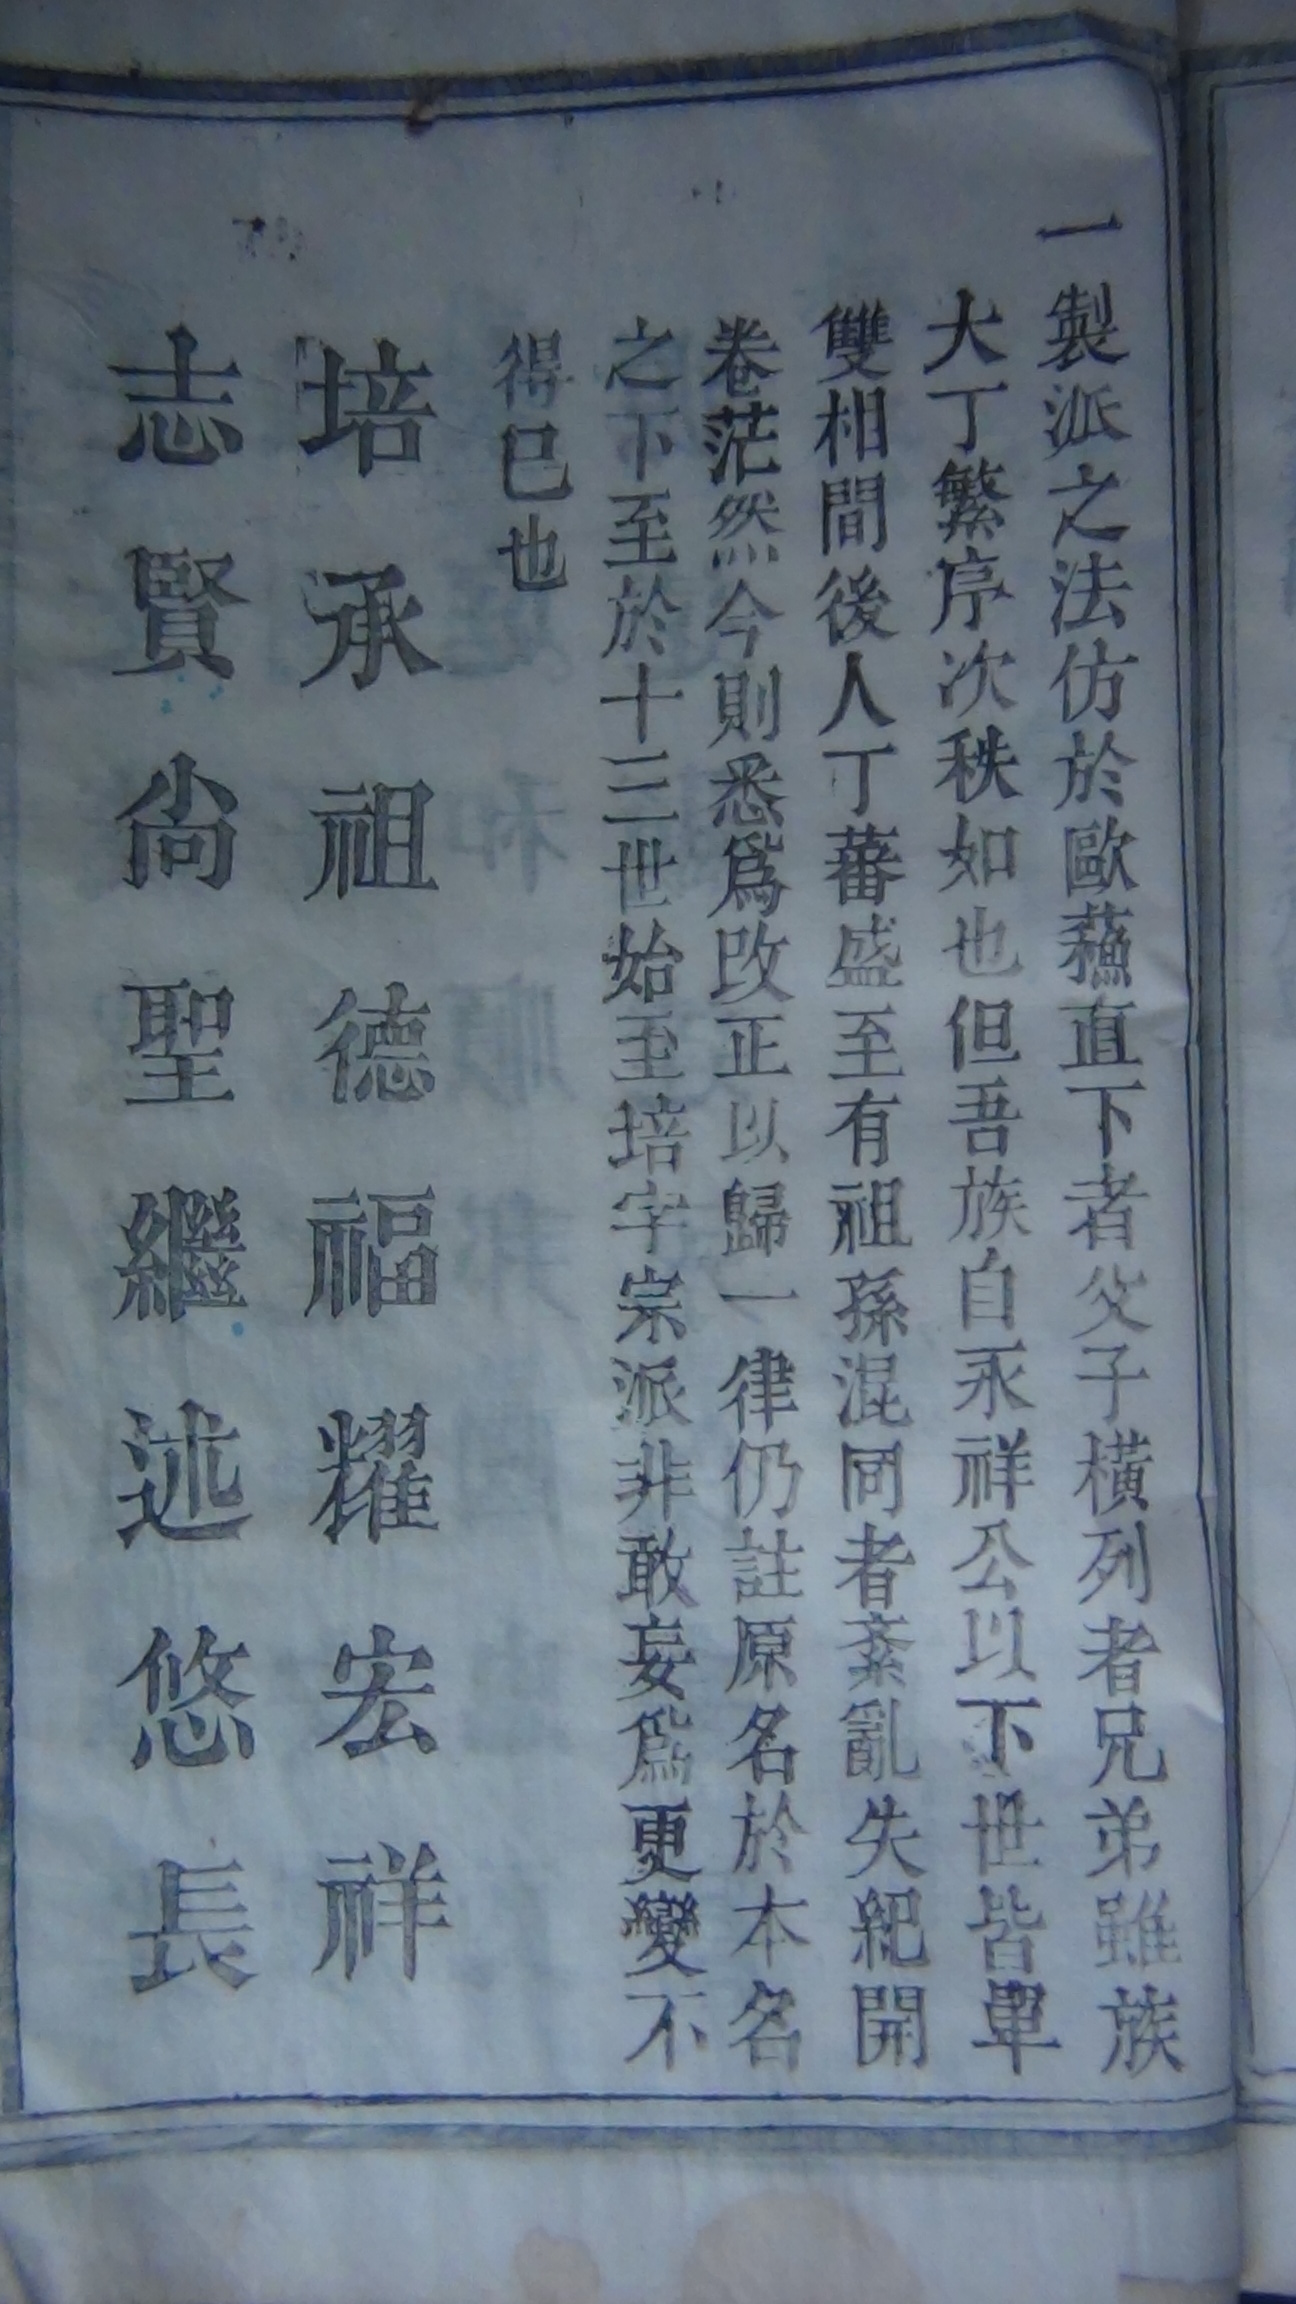 一製派之法仿於歐蘓直下者父子橫列者兄弟雖族
大丁繁序次秩如也但吾族自永祥公以下世皆單
雙相間後人丁蕃盛至有祖孫混同者紊亂失紀開
卷茫然今則悉爲改正以歸一律仍註原名於本名
之下至於十三世始至培字宗派非敢妄爲更變不
得已也
培承祖德福耀宏祥
志賢尙聖繼述悠長